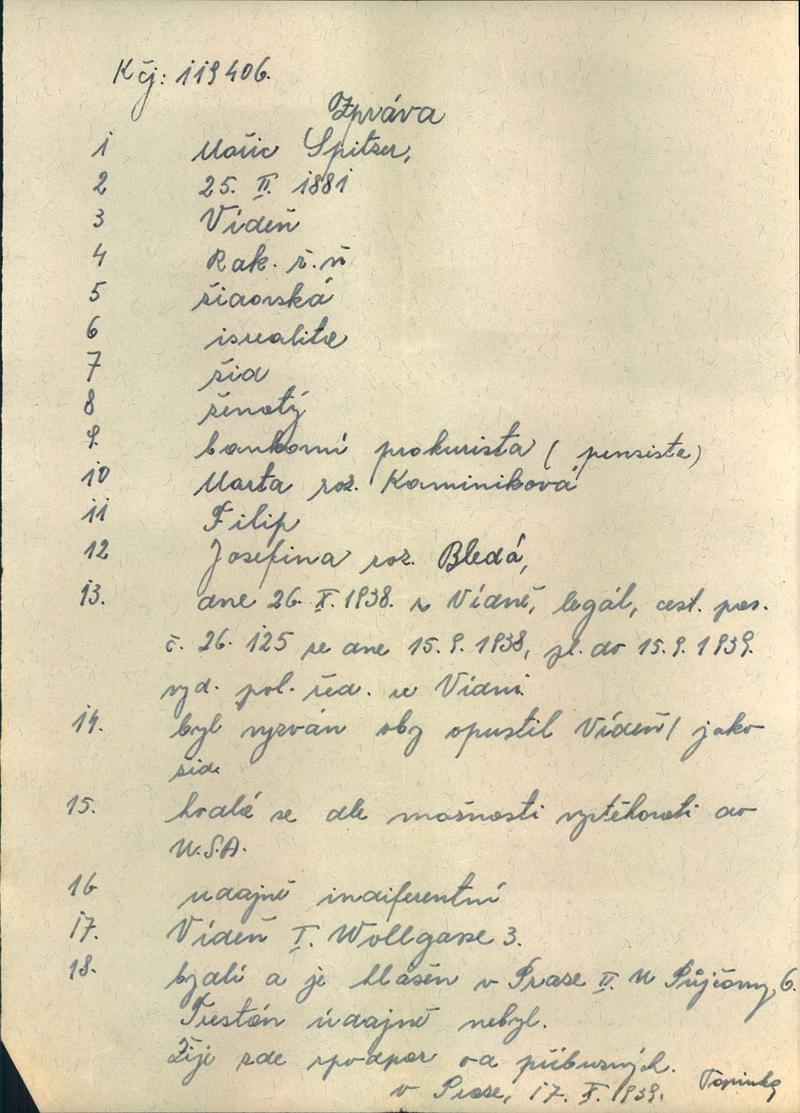 K čj: 119406.
Zpráva
1 Mořic Spitzer,
2 25. II. 1881
3 Vídeň
4 Rak. ř. n
5 židovská
6 israelita
7 žid
8 ženatý
9. bankovní prokurista ( pensista )
10 Marta roz. Kaminiková
11 Filip
12 Josefina roz. Bledá,
13. dne 26. X. 1938. z Vídně, legál, cest. pas.
č. 26.125 ze dne 15.9.1938, pl. do 15.9.1939.
vyd. pol. řed. ve Vídni
14. byl vyzván aby opustil Vídeň / jako
žid.
15. hodlá se dle možnosti vystěhovati do
U.S.A.
16 údajně indiferentní
17. Vídeň I. Wollgasse 3.
18. bydlí a je hlášen v Praze II. U Půjčovny 6.
Trestán údajně nebyl.
Žije zde z podpor od příbuzných.
v Praze, 17. X. 1939.